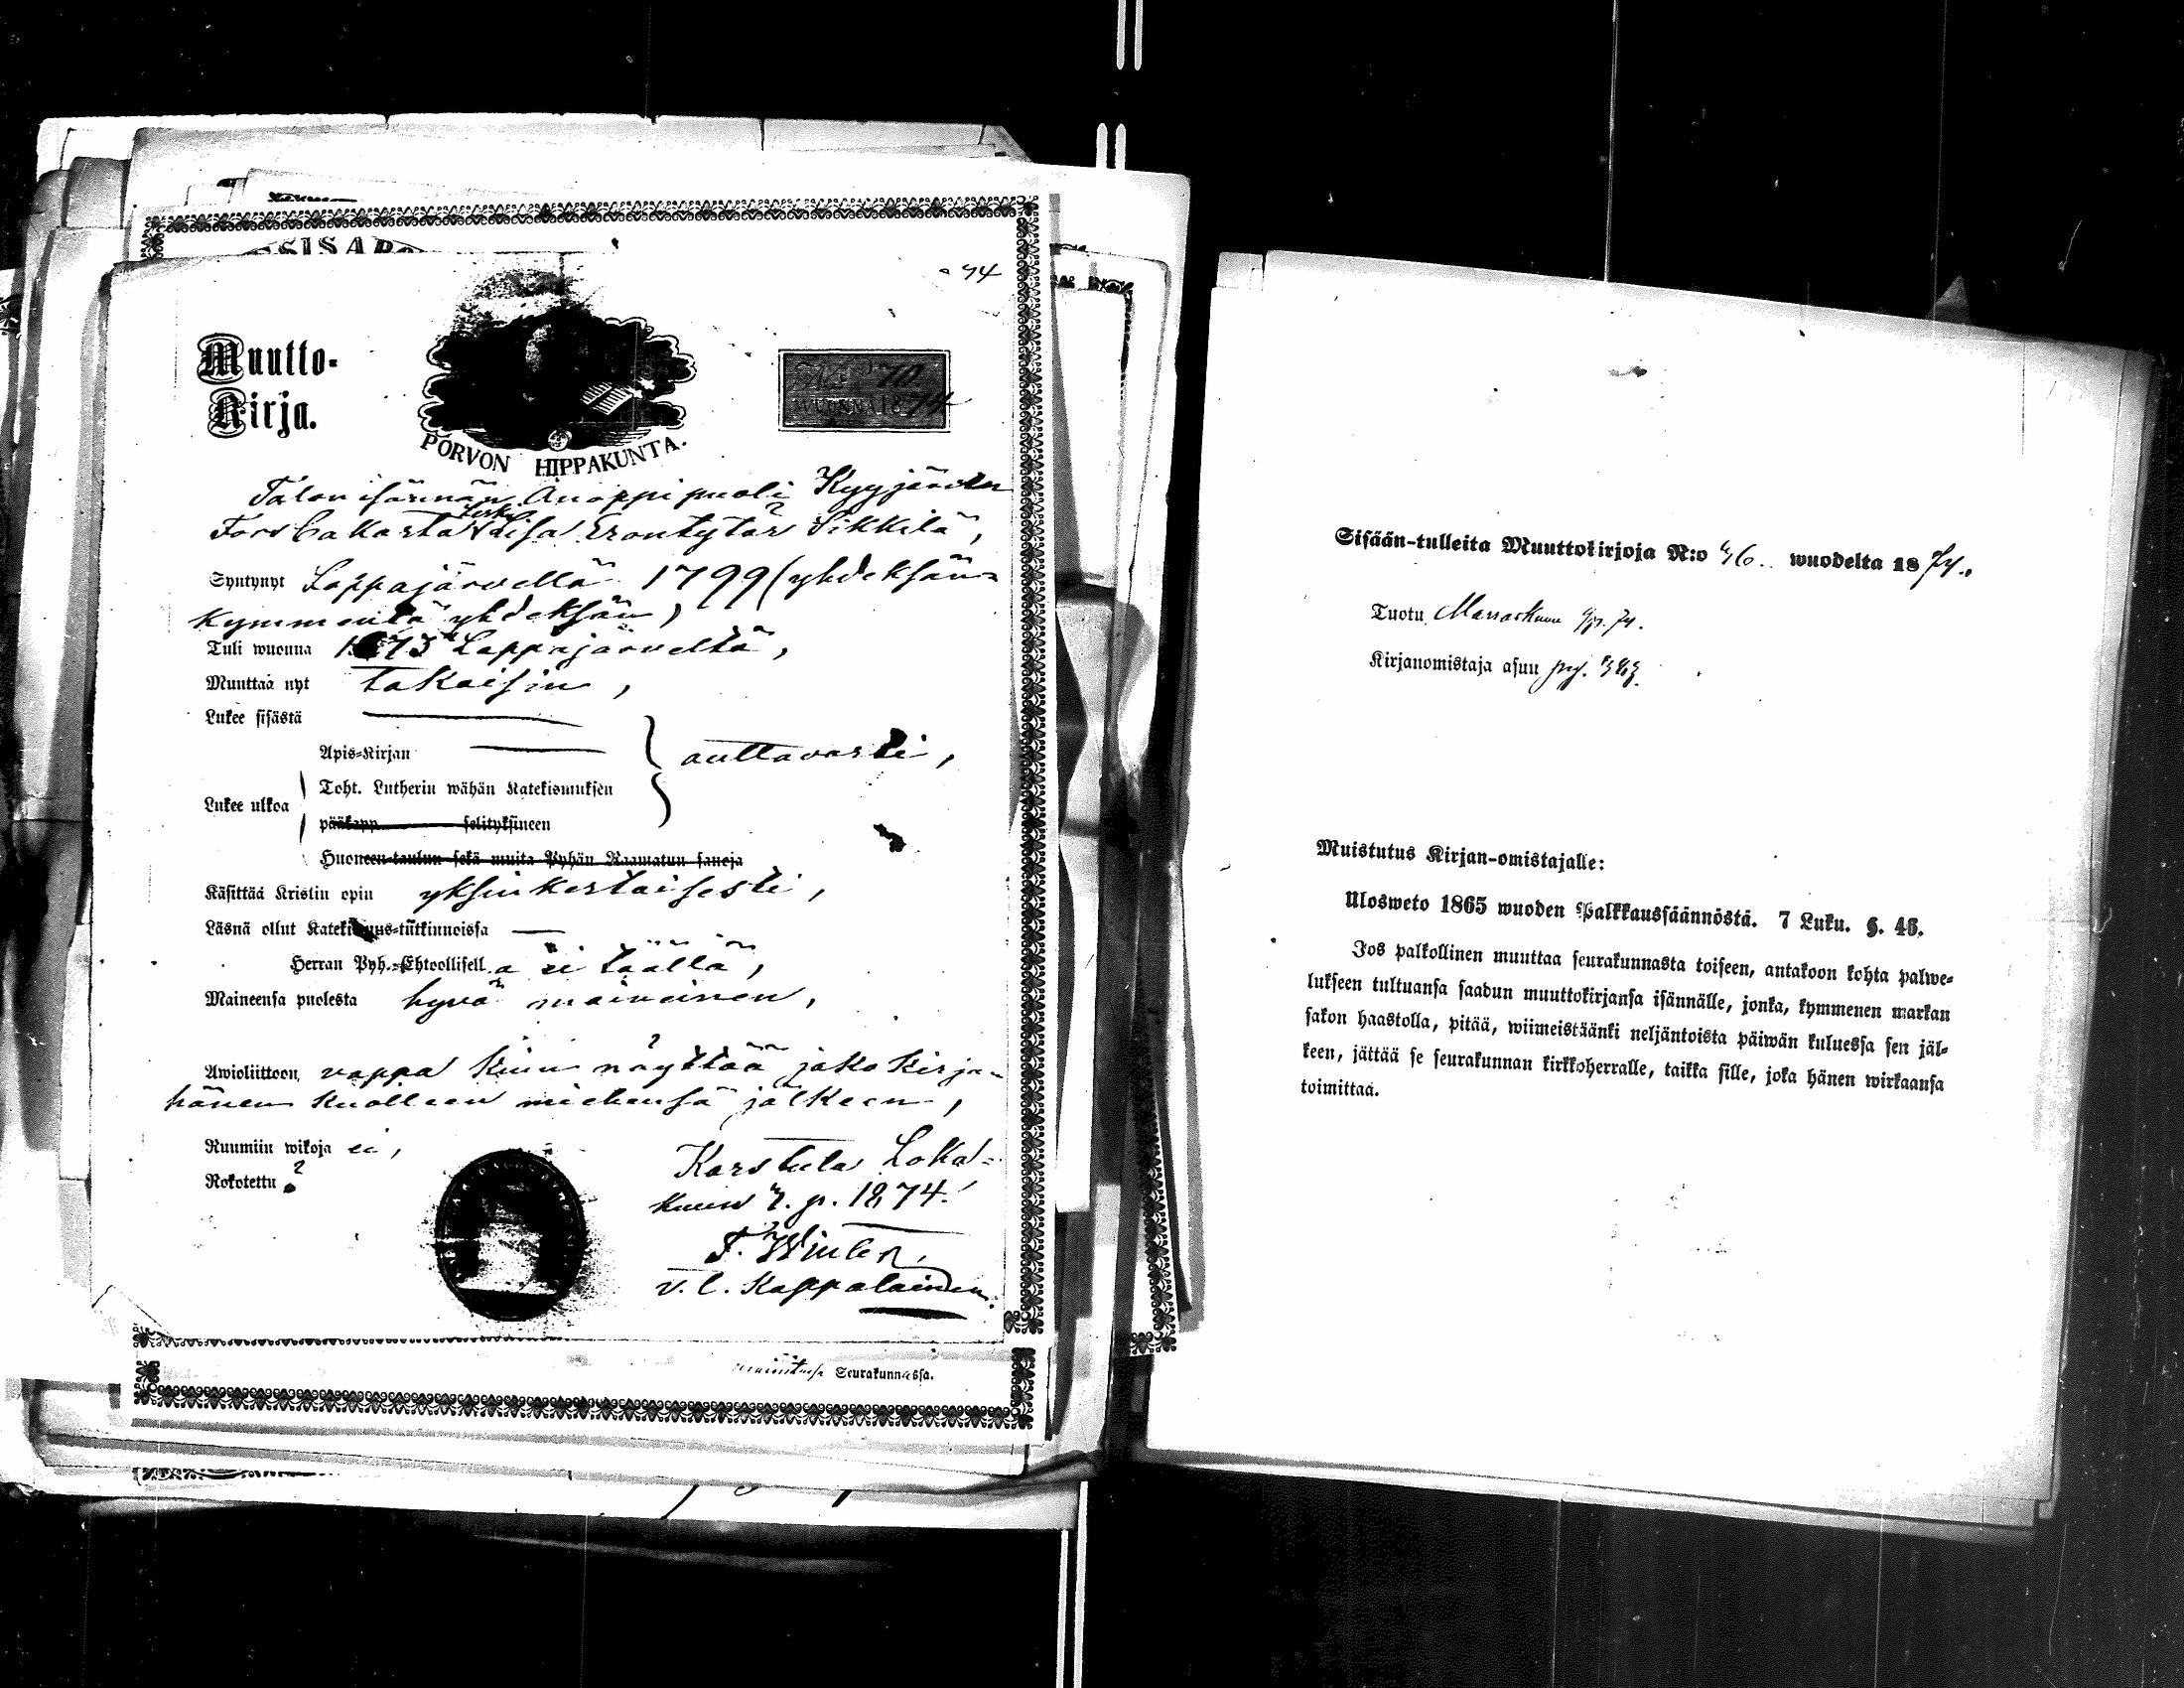 74
Muutto-
Kirja.
PORVON HIPPAKUNTA.
No 70.
WUONNA 1874
Talon isännän Anoppipuoli Kyyjärven
leski
Fors Cakasta Kaisa Erontytär Sikkilä,
Syntynyt Lappajärvellä 1799 (yhdeksän=
kymmentä yhdeksän)
Tuli wuonna 1873 Lappajärveltä,
Muuttaa nyt takaisin,
Lukee sisästä
Apis-Kirjan
auttavasti,
Lukee ulkoa
Toht. Lutherin wähän Katekismuksen
pääkapp selityksineen
Huoneen-taulun sekä muita Pyhän Raamatun sanoja
Käsittää Kristin opin yksinkertaisesti,
Läsnä ollut Katekismus-tutkinnoissa —
Herran Pyh.-Ehtoollisella ei täällä,
Maineensa puolesta hyvä maineinen,
Awioliittoon vappa kuin näyttää jakokirja
hänen kuolleen miehensä jälkeen,
Ruumiin wikoja ei,
Rokotettu ?
Karstula Loka=
kuun 7. p. 1874.
F. Winter,
v. t. Kappalainen.
Seurakunnassa.
Sisään-tulleita Muuttokirjoja N:o 46. wuodelta 1874.
Tuotu Marraskuun 74.
Kirjanomistaja asuu pag. 383.
Muistutus Kirjan-omistajalle:
Ulosweto 1865 wuoden Palkkaussäännöstä. 7 Luku. §. 46.
Jos palkollinen muuttaa seurakunnasta toiseen, antakoon kohta palwe-
lukseen tultuansa saadun muuttokirjansa isännälle, jonka, kymmenen markan
sakon haastolla, pitää, wiimeistäänki neljäntoista päiwän kuluessa sen jäl-
keen, jättää se seurakunnan kirkkoherralle, taikka sille, joka hänen wirkaansa
toimittaa.